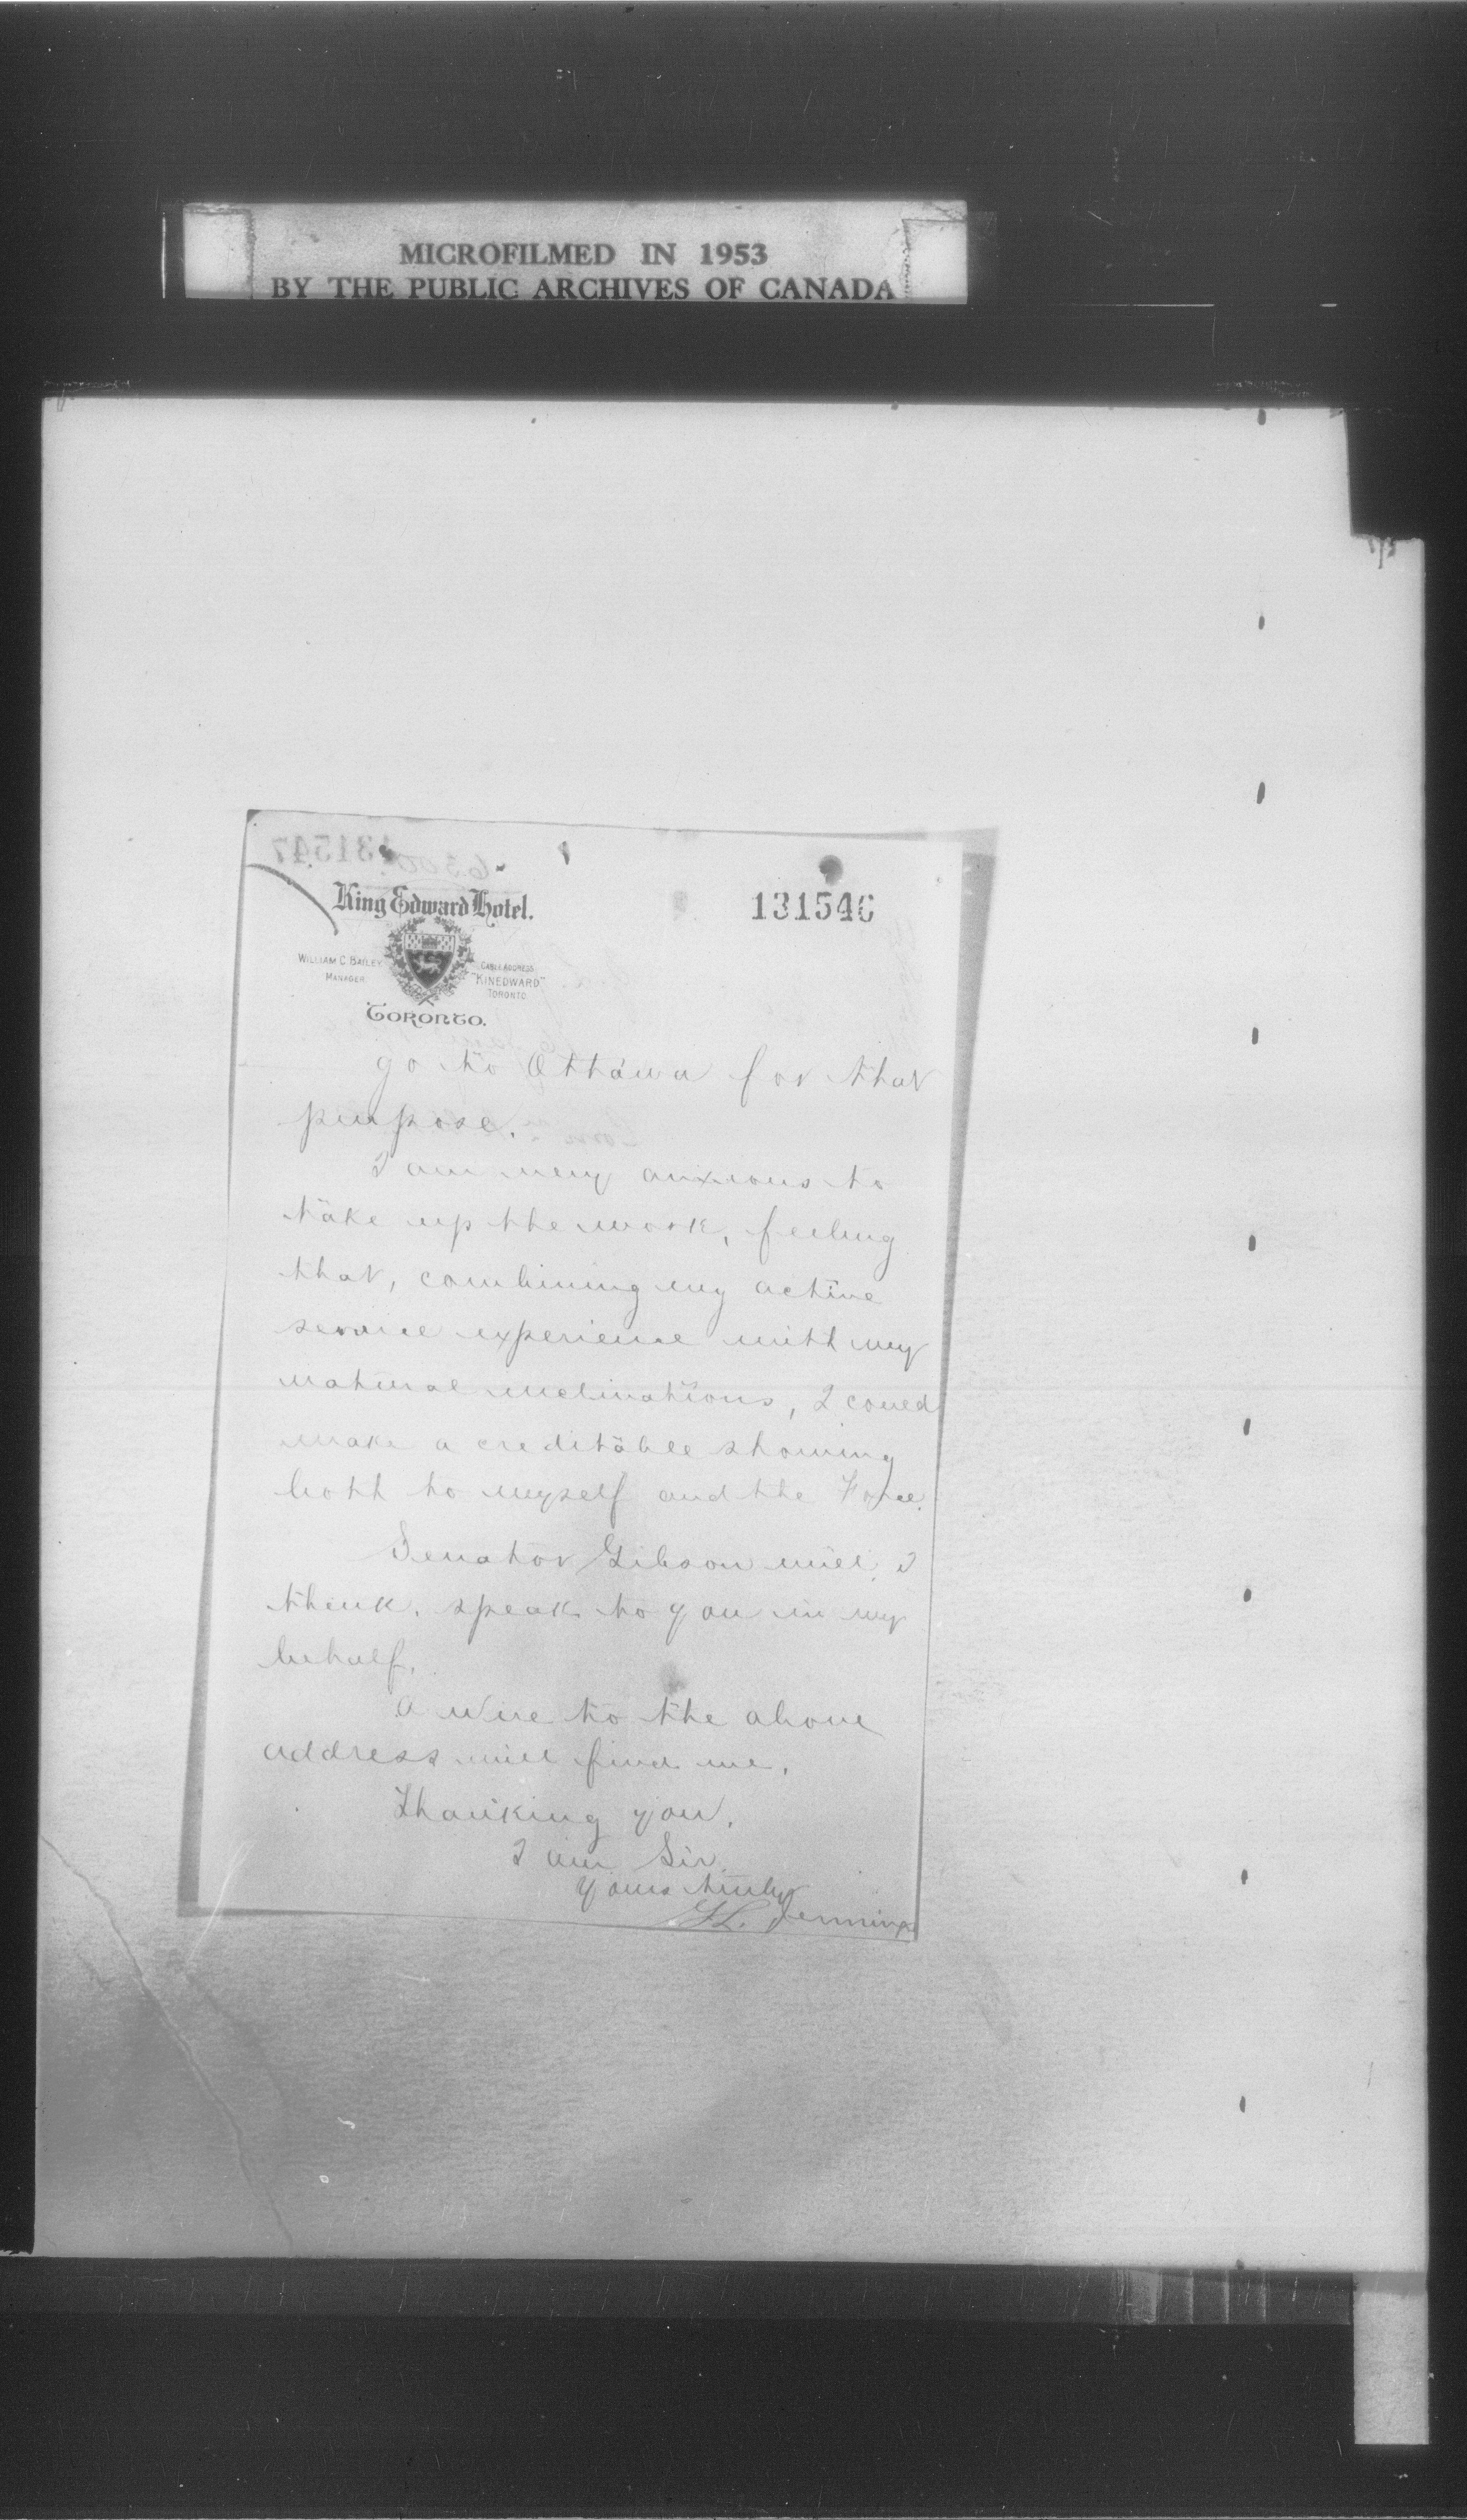 MICROFILMED IN 1953
BY THE PUBLIC ARCHIVES OF CANADA
131547
6300
King Edward Hotel.
131546
WILLIAM C. BAILEY
MANAGER
CABLE ADDRESS
"KINEDWARD"
TORONTO
TORONTO.
go to Ottawa for that
purpose.
I am very anxious to
take up the work, feeling
that, combining my active
service experience with my
natural inclinations, I could
make a creditable showing
both to myself and the Force.
Senator Gibson will, I
think, speak to you in my
behalf.
A wire to the above
address will find me.
Thanking you,
I am Sir,
Yours truly
G.L. Jennings